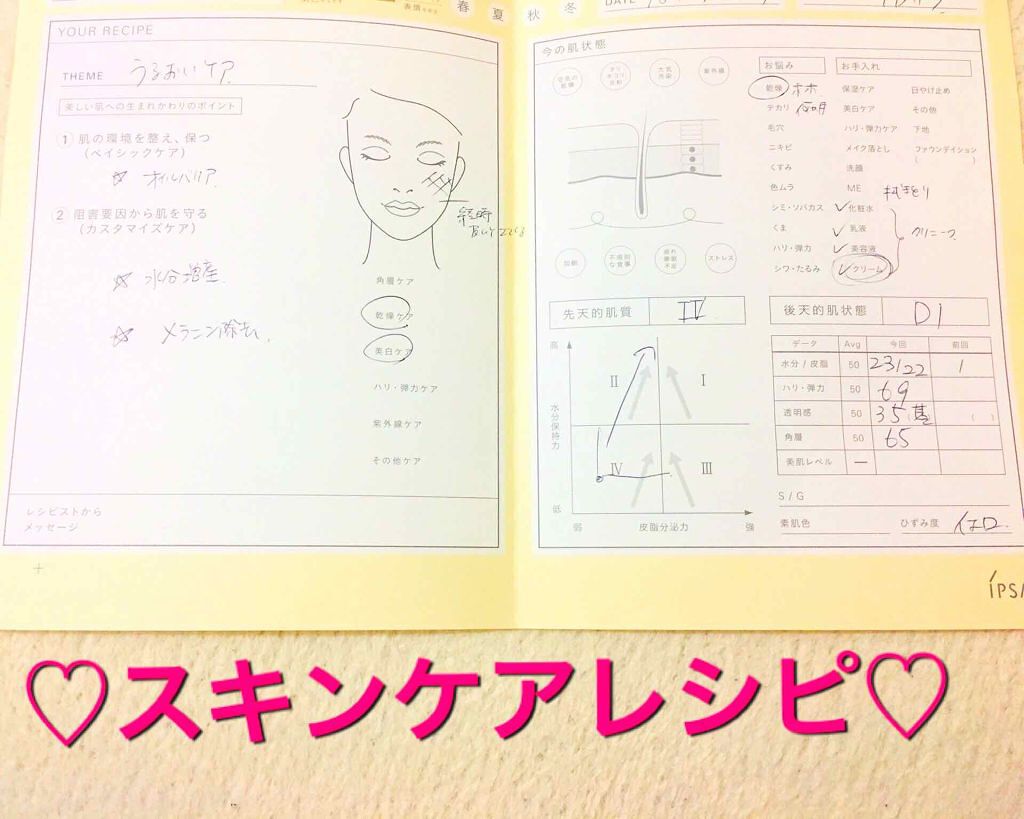 春 夏 秋 冬
DATE
YOUR RECIPE
THEME うるおいケア
美しい肌への生まれかわりのポイント
1 肌の環境を整え、保つ
(ベイシックケア)
☆ オイルバリア
2 阻害要因から肌を守る
(カスタマイズケア)
☆ 水分増産
☆ メラニン除去
角層ケア
乾燥ケア
美白ケア
ハリ・弾力ケア
紫外線ケア
その他ケア
レシピストから
メッセージ
今の肌状態
空気の乾燥
チリ ホコリ 花粉
大気汚染
紫外線
加齢
不規則な食事
疲れ 睡眠不足
ストレス
お悩み
お手入れ
乾燥 ホホ 保湿ケア 日やけ止め
テカリ 美白ケア その他
毛穴 ハリ・弾力ケア 下地
ニキビ メイク落とし ファウンデイション
くすみ 洗顔 ( )
色ムラ ME ふきとり
シミ・ソバカス ✓化粧水
くま ✓乳液 クリニーク
ハリ・弾力 ✓美容液
シワ・たるみ ✓クリーム
先天的肌質 IV
後天的肌状態 D1
高
水分保持力
低
II I
IV III
弱 皮脂分泌力 強
データ Avg 今回 前回
水分/皮脂 50 23/22 /
ハリ・弾力 50 69
透明感 50 35(基) ( )
角層 50 65
美肌レベル —
S/G
素肌色 ひずみ度 イエロ
IPSA
♡スキンケアレシピ♡